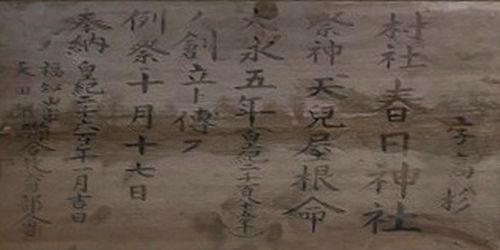 字高杉
村社春日神社
祭神天兒屋根命
大永五年(皇紀二千百八十五年)
ノ創立ト傳フ
例祭十月十七日
奉納 皇紀二千六百年一月吉日
福知山
天田郡